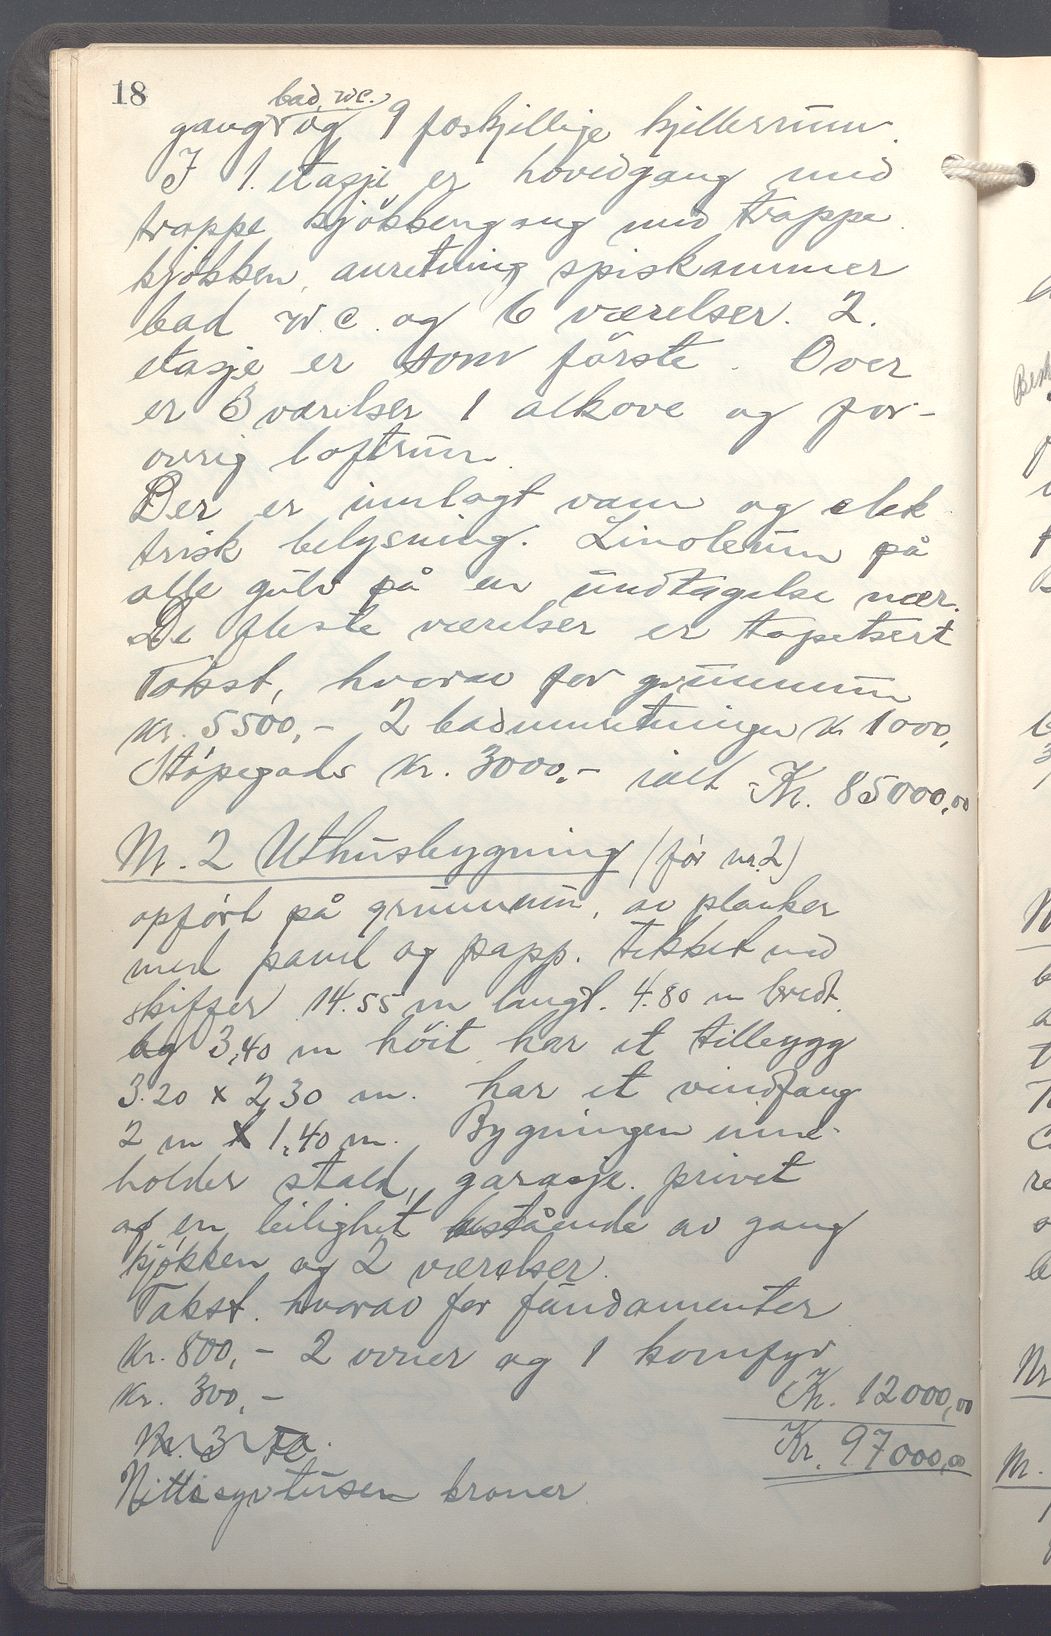 18
bad, w.c.
gang og 9 foskjillige kjillerrum.
I 1. etasje er hovedgang med
trappe kjøkkengang med trappe
kjøkken, anretning spiskammer
bad w.c. og 6 værelser. 2.
etasje er som første. Over
er 3 værelser 1 alkove og for-
øvrig loftrum.
Der er innlagt vann og elek
trisk belysning. Linoleum på
alle gulv på en undtagelse nær.
De fleste værelser er tapetsert
Takst, hvorav for grunnmur
Kr. 5500,- 2 badeinnretninger Kr 1000,
Støpegods Kr. 3000,- ialt Kr. 85000,00
Nr. 2 Uthusbygning (før nr. 2)
opført på grunnmur, av planker
med panel og papp. tekket med
skiffer 14.55 m langt. 4.80 m bredt
og 3,40 m höit har et tillegg
3.20 x 2,30 m. har et vindfang
2 m x 1,40 m. Bygningen inne-
holder stald, garasje. privet
og en leilighet bestående av gang
kjøkken og 2 værelser.
Takst. hvorav for fundamenter
Kr. 800,- 2 ovner og 1 komfyr
Kr. 300,- Kr. 12000,00
Nr. 3 Kr. 97000,00
Nittisyvtusen kroner